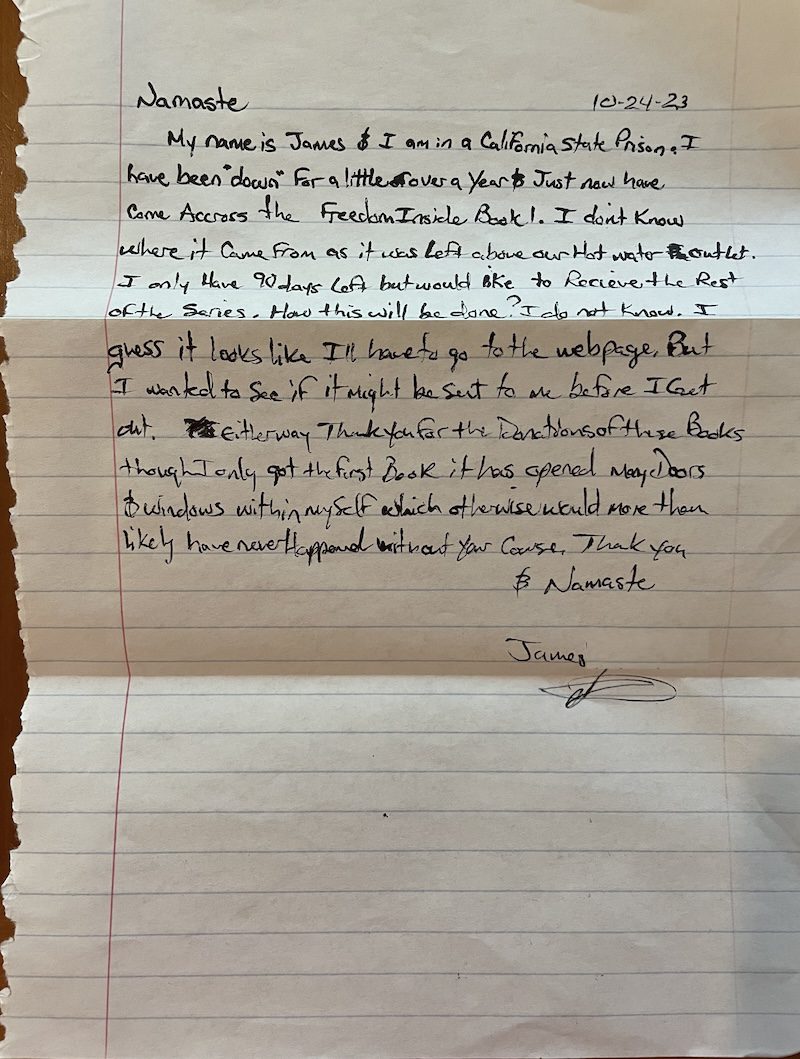 Namaste 10-24-23
My name is James & I am in a California State Prison. I
have been "down" For a little over a Year & Just now have
Come Accross the Freedom Inside Book!. I don't Know
where it Came From as it was Left above our Hot water outlet.
I only Have 90 days Left but would like to Recieve the Rest
of the Series. How this will be done? I do not know. I
guess it looks like I'll have to go to the webpage, But
I wanted to See if it might be sent to me before I Get
out. Either way Thank You For the Donations of these Books
though I only got the first Book it has opened many Doors
& windows within myself which otherwise would more than
likely have never Happened without Your Course. Thank you
& Namaste
James